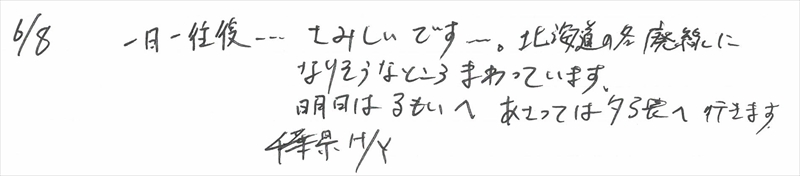 6/8 一日一往復---- さみしいです〜。北海道の各廃線に
なりそうなところまわっています。
明日はるもいへ あさっては夕張へ行きます
千葉県 H/Y